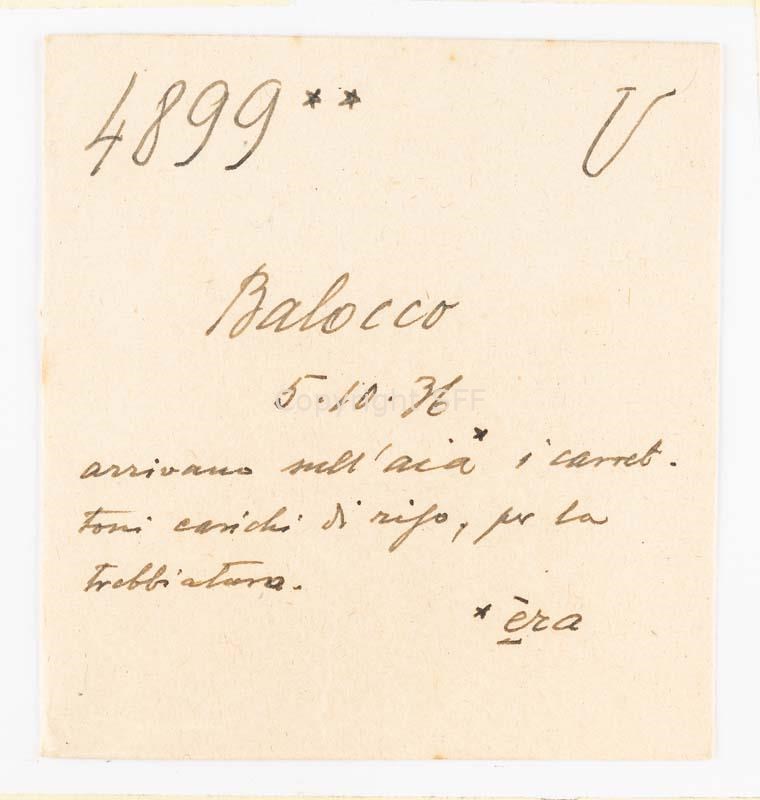 4899** U
Balocco
5.10.36
Copyright GFF
arrivano sull'aia* i carret.
toni carichi di riso, per la
trebbiatura.
* èra